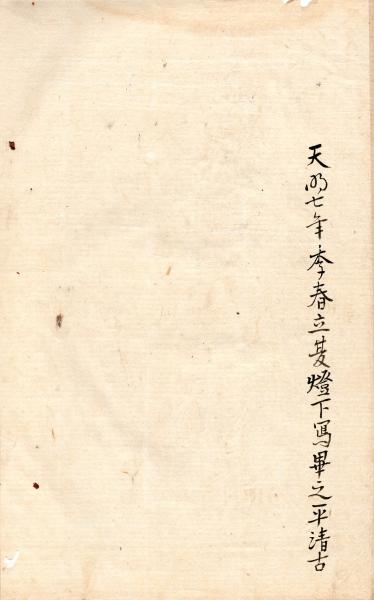 天明七年季春立夏燈下写畢之平清古